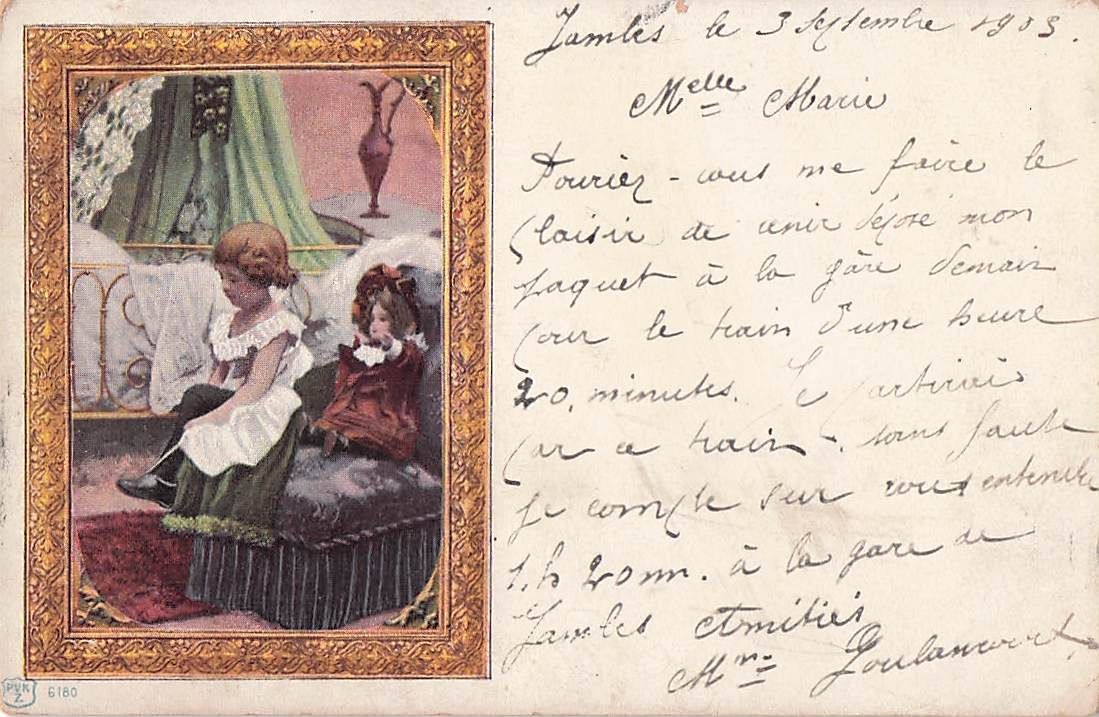 Jambes le 3 Septembre 1903.
Melle Marie
Pouriez-vous me faire le
plaisir de venir déposé mon
paquet à la gâre demain
pour le train d'une heure
20 minutes. Je partirai
par ce train. sans faute
je compte sur vous entendu
1.h 20m. à la gare de
Jambes Amitiés
Mme
PVK
Z.
6180